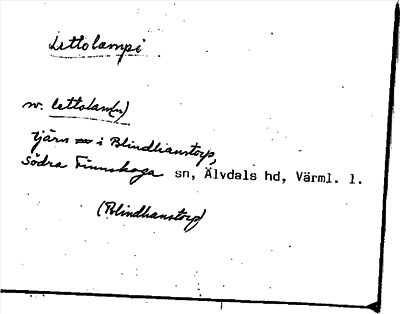 Lettolampi
w. lettolam(n)
tjärn i Blindhanstorp,
Södra Finnskoga sn, Älvdals hd, Värml. l.
(Blindhanstorp)